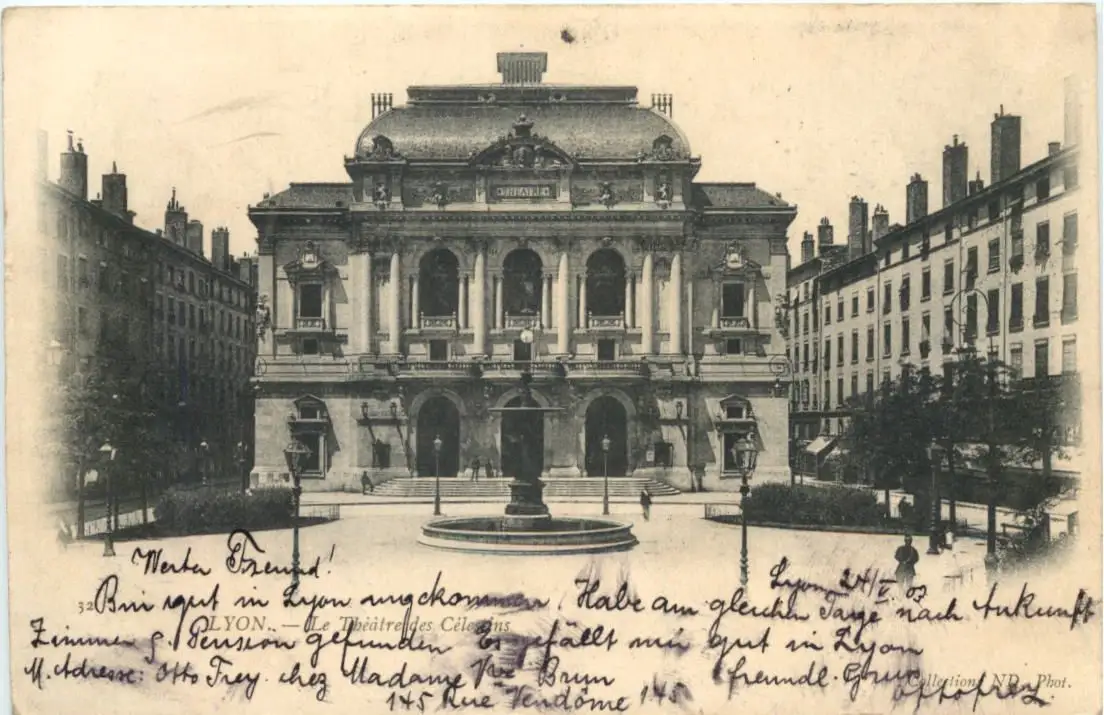 THÉATRE
Werter Freund!
Lyon 24/V. 03
Bin gut in Lyon angekommen. Habe am gleichen Tage nach Ankunft
32 LYON. — Le Théâtre des Célestins
Zimmer & Pension gefunden Es gefällt mir gut in Lyon
M. Adresse: Otto Frey. chez Madame Vve Brun freundl. Gruss
Collections ND. Phot.
145 Rue Vendôme 145 Otto Frey.